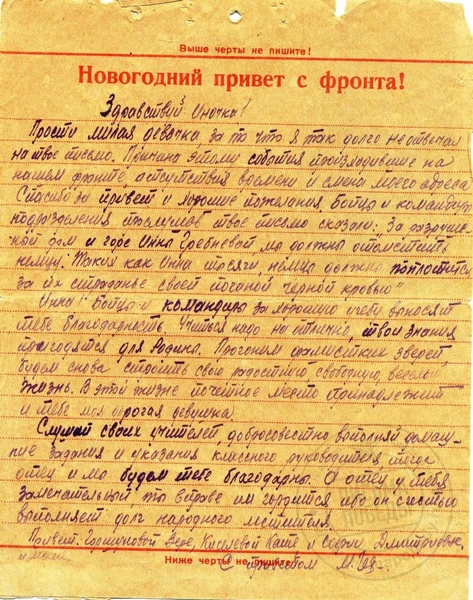 Выше черты не пишите!
Новогодний привет с фронта!
Здравствуй Инночка!
Прости милая девочка за то что я так долго не отвечал
на твое письмо. Причина этому события происходившие на
нашем фронте отсутствия времени и смена моего адреса
Спасибо за привет и хорошие пожелания. Бойцы и командиры
подразделения прослушав твое письмо сказали: За разрушен-
ной дом и горе Инна Гребневой мы должны отомстить
немцу! Такия как Инна тысячи, немцы должны поплотится
за их страданье своей поганой черной кровью"
Инна! Бойцы и командиры за хорошую учебу выносят
тебе благодарность. Учиться надо на отлично твои знания
пригодятся для Родины. Прогоним фашистких зверей
будем снова строить свою радостную свободную, веселую
жизнь. В этой жизне почетное место принадлежит
и тебе моя дорогая девушка
Слушай своих учителей, добросовестно выполняй домаш-
ние задания и указания классного руководителя тогда
отец и мы будем тебе благодарны. А отец у тебя
замечательный, ты вправе им гордится ибо он с честью
выполняет долг народного мстителя.
Привет: Вере, Киселевой Кате и Софии Дмитриевне,
и маме.
С приветом М.
Ниже черты не пишите!